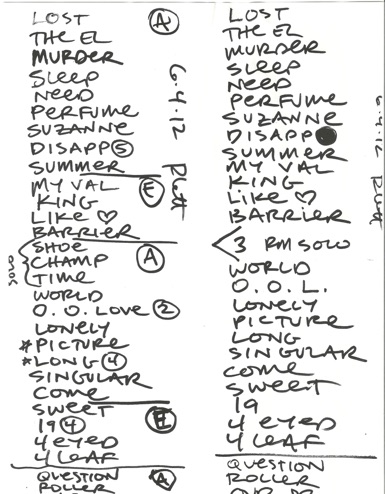 LOST Ⓐ
THE EL
MURDER
SLEEP
NEED
PERFUME
SUZANNE
DISAPP ⑤
SUMMER
MY VAL Ⓔ
KING
LIKE ♡
BARRIER
SHOE
CHAMP Ⓐ
TIME
SOLO
WORLD
O.O. LOVE ②
LONELY
*PICTURE
*LONG ④
SINGULAR
COME
SWEET Ⓔ
19 ④
4 EYED
4 LEAF
QUESTION Ⓐ
ROLLER
6.4.12
LOST
THE EL
MURDER
SLEEP
NEED
PERFUME
SUZANNE
DISAPP
SUMMER
MY VAL
KING
LIKE ♡
BARRIER
3 RM SOLO
WORLD
O.O.L.
LONELY
PICTURE
LONG
SINGULAR
COME
SWEET
19
4 EYED
4 LEAF
QUESTION
ROLLER
6.4.12